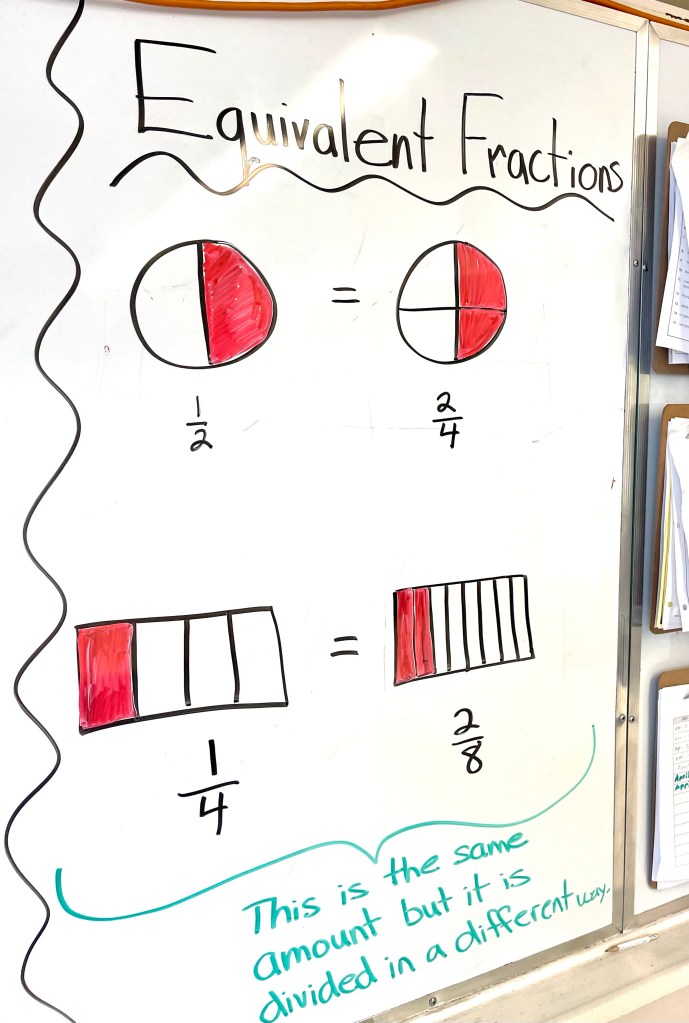 Equivalent Fractions
=
1/2
2/4
=
1/4
2/8
This is the same
amount but it is
divided in a different way.